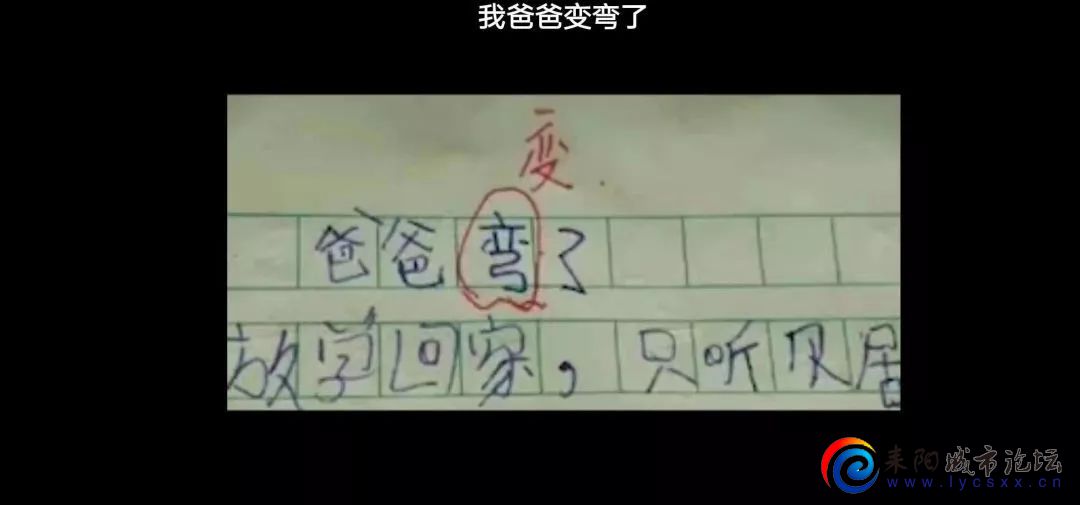 我爸爸变弯了
变
爸爸弯了
放学回家，只听见居
耒阳城市论坛
www.lycsxx.cn